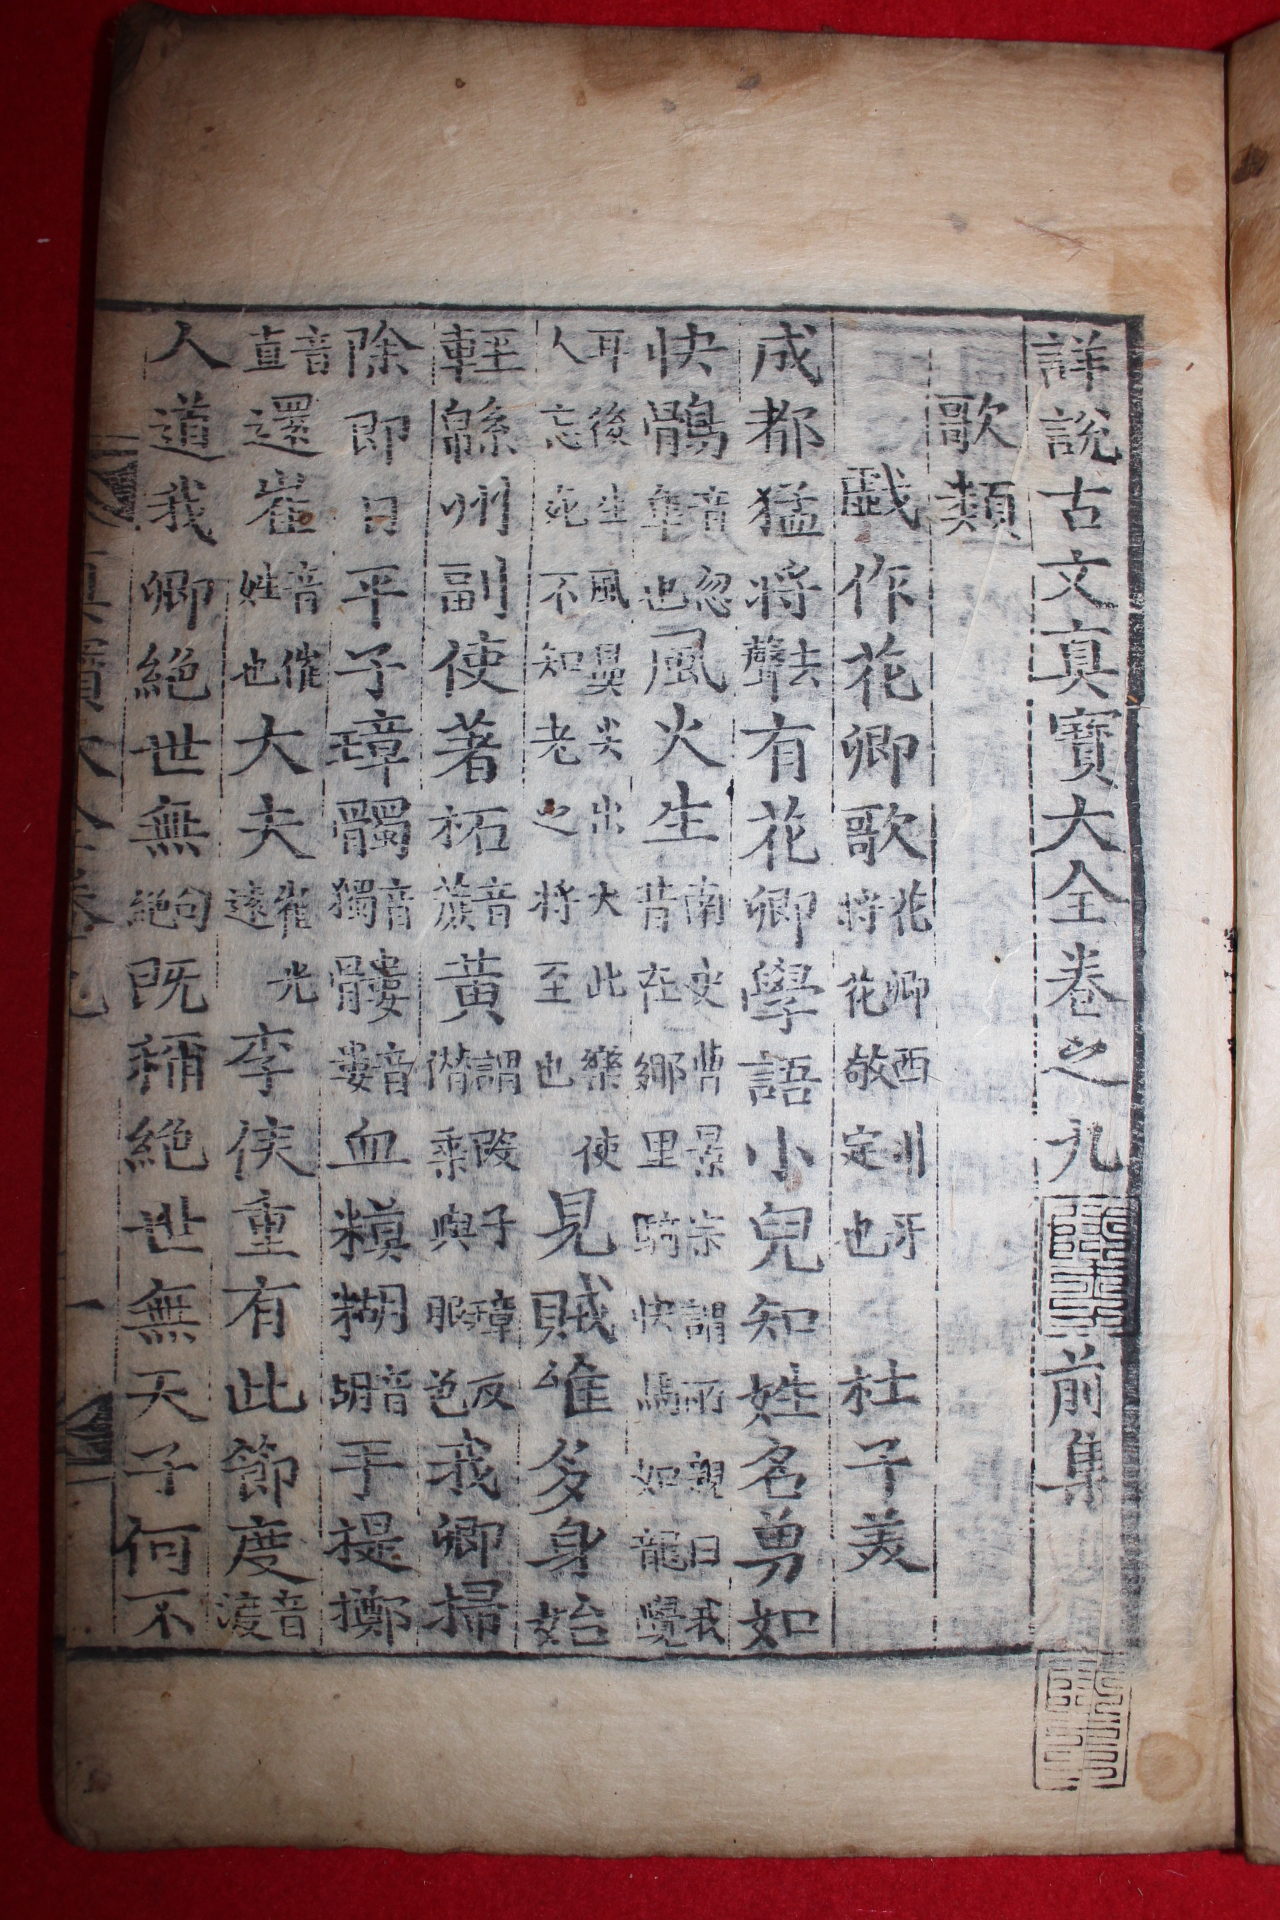 詳說古文眞寶大全卷之九 前集
歌類
戱作花卿歌 花卿西川牙將花敬定也 杜子美
成都猛將去聲有花卿學語小兒知姓名勇如
快鶻音忽隼也風火生南史曹景宗謂所親曰我昔在鄉里騎快馬如龍覺
耳後生風鼻尖出火此樂使人忘死不知老之將至也見賊惟多身始
輕緜州副使著柘音蔗黃謂段子璋反僭乘輿服色我卿掃
除即日平子璋髑音獨髏音婁血糢糊音胡手提擲
音直還崔音催姓也大夫崔光遠李侯重有此節度音渡
人道我卿絕世無句絕既稱絕世無天子何不